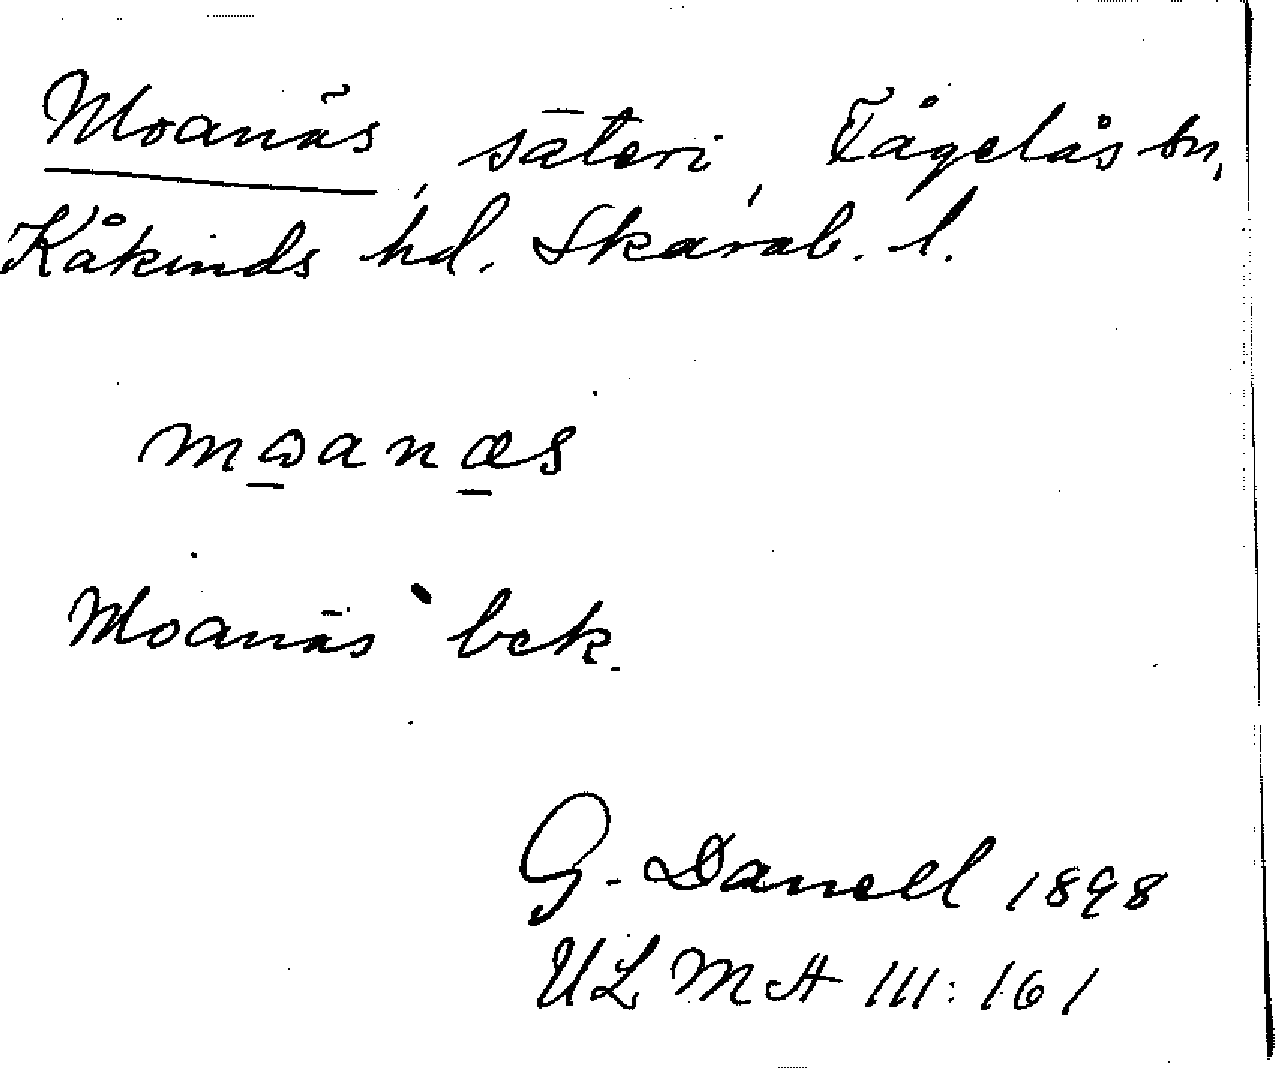 Moanäs, säteri, Fågelås sn,
Kåkinds hd. Skarab. l.
mɷanæs
Moanäs bek.
G. Danell 1898
ULMA 111:161